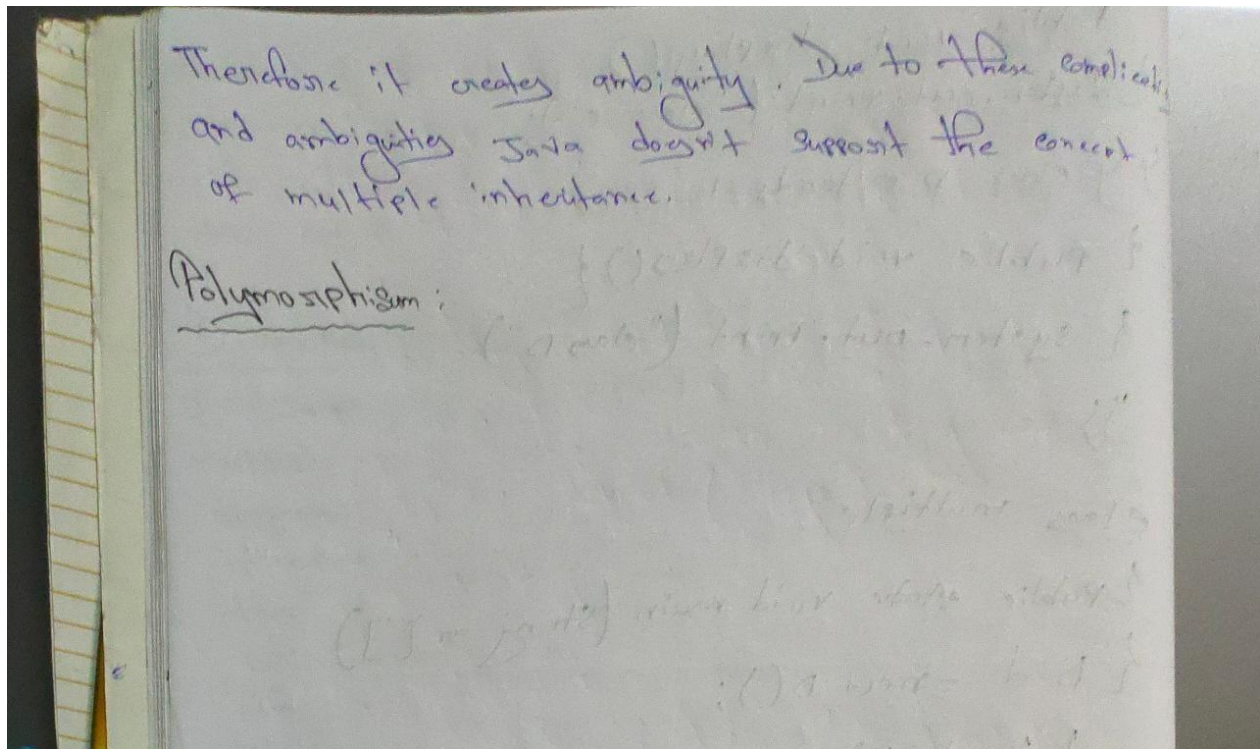 Therefore it creates ambiguity. Due to these
and ambiguities Java doesn't support the concept
of multiple inheritance.
Polymorphism: